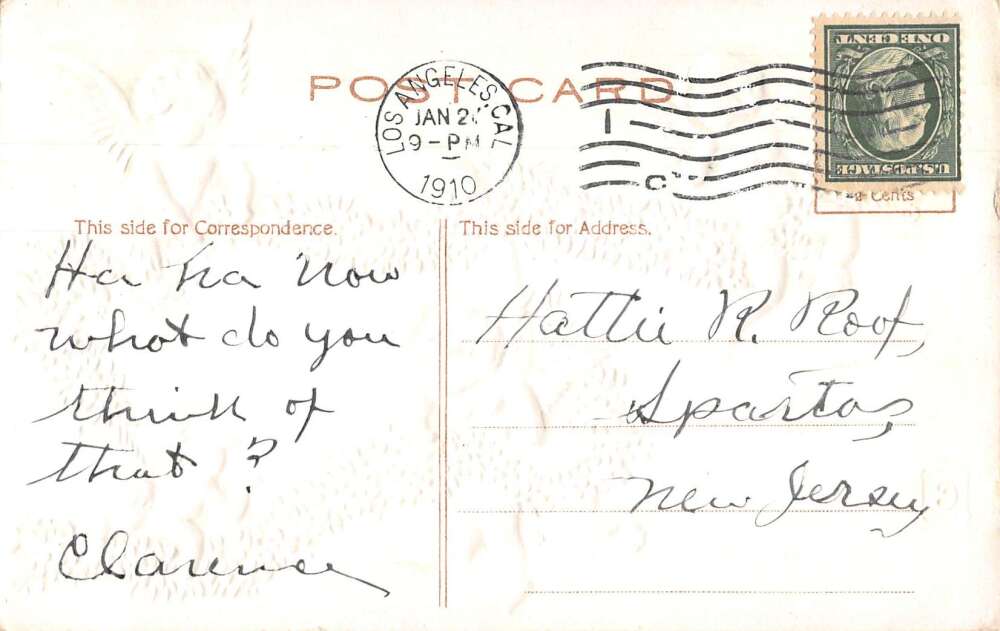 POST CARD
LOS ANGELES, CAL
JAN 2
9-PM
1910
1
C
ONE CENT
U.S. POSTAGE
Cents
This side for Correspondence.
This side for Address.
Ha ha Now
what do you
think of
that?
Clarence
Hattie R. Roof,
Sparta,
New Jersey